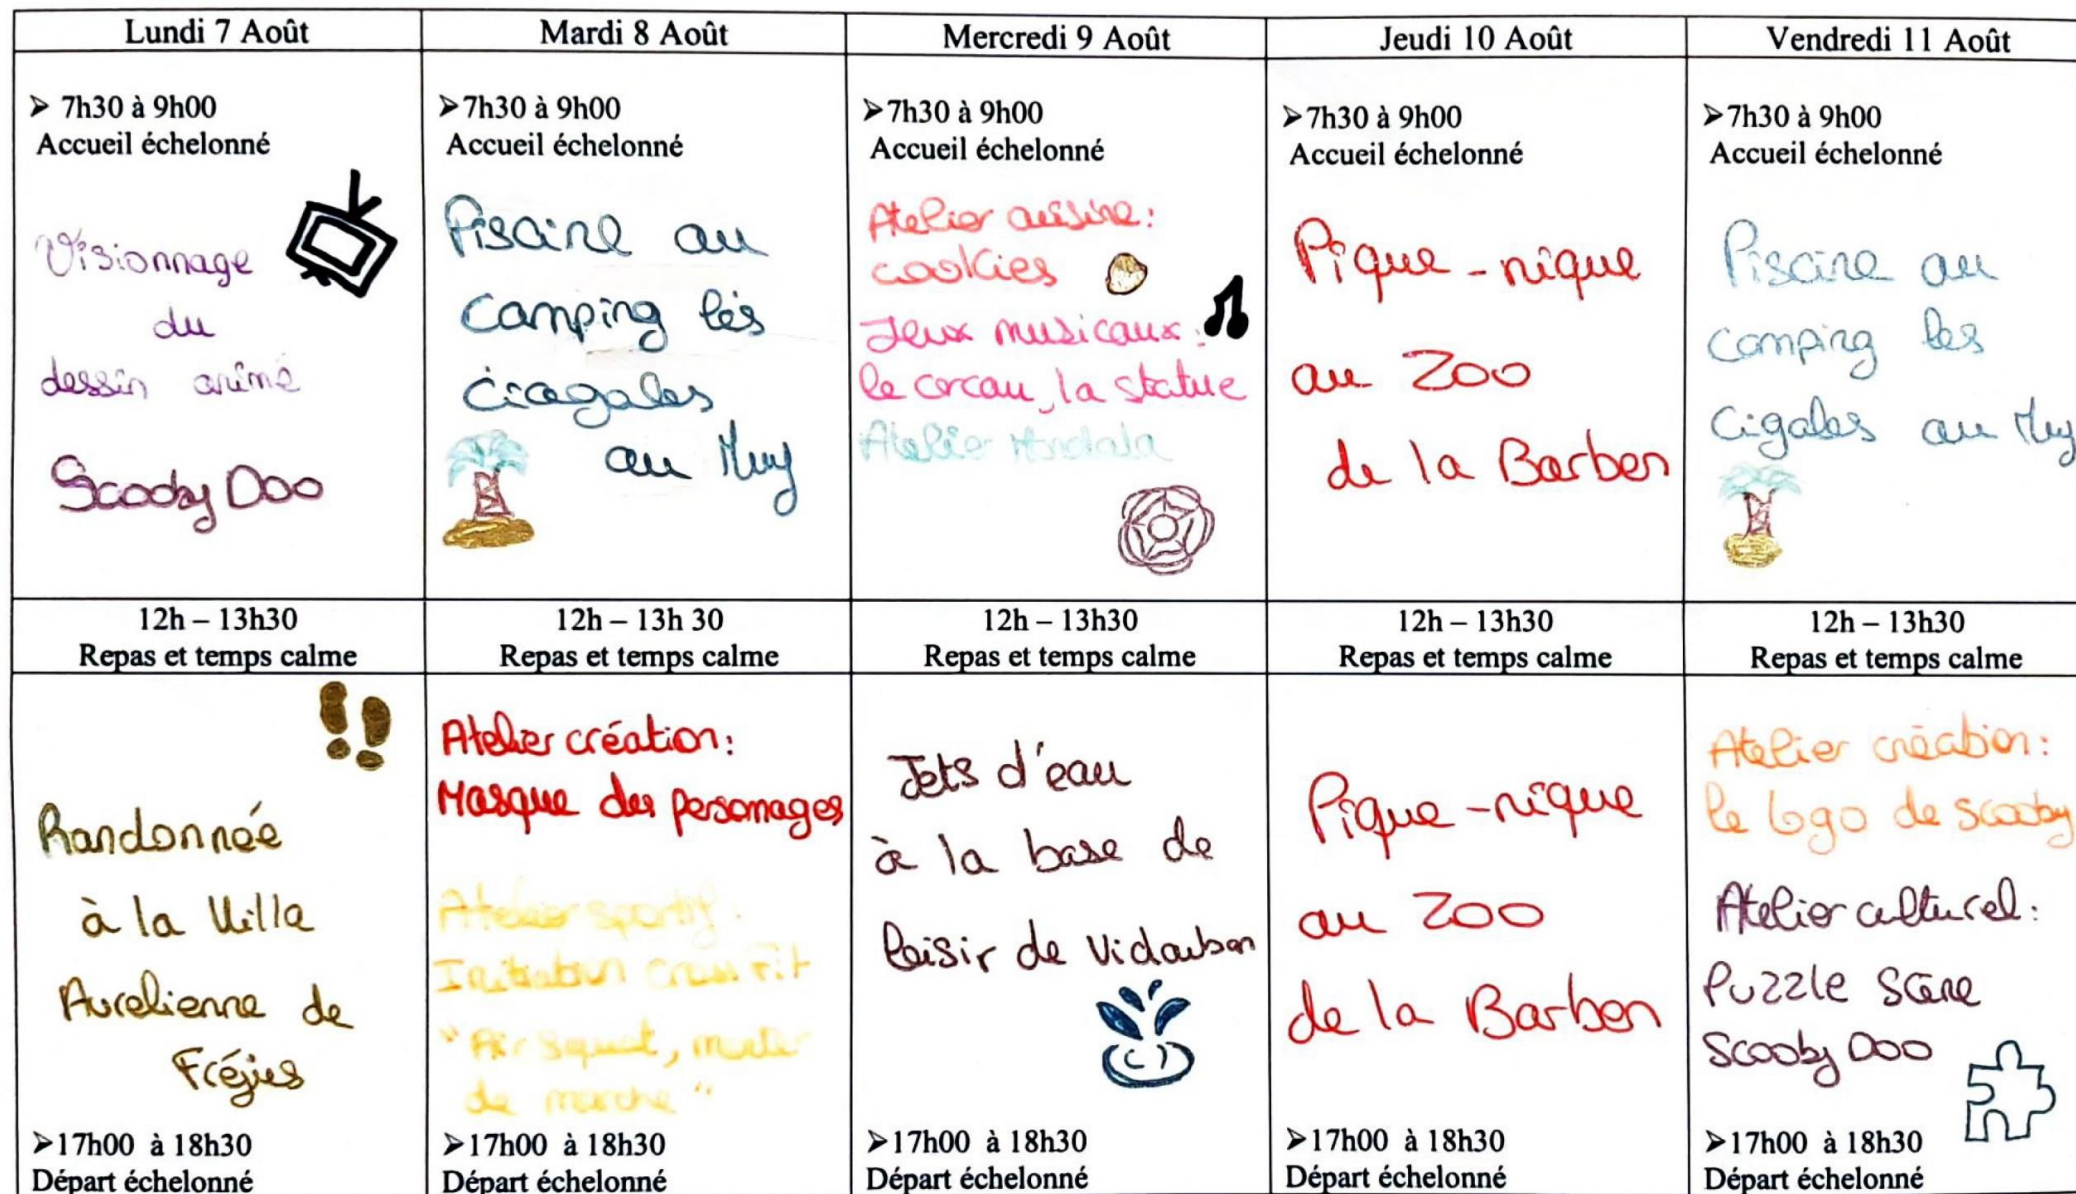 Lundi 7 Août
Mardi 8 Août
Mercredi 9 Août
Jeudi 10 Août
Vendredi 11 Août
➢ 7h30 à 9h00
Accueil échelonné
Visionnage
du
dessin animé
Scooby Doo
➢7h30 à 9h00
Accueil échelonné
Piscine au
Camping lés
cicagales
au Muy
➢7h30 à 9h00
Accueil échelonné
Atelier cuisine:
cookies
Jeux musicaux:
le corcau, la statue
Atelier Mandala
➢7h30 à 9h00
Accueil échelonné
Pique-nique
au Zoo
de la Barben
➢7h30 à 9h00
Accueil échelonné
Piscine au
camping les
Cigales au Muy
12h – 13h30
Repas et temps calme
12h – 13h 30
Repas et temps calme
12h – 13h30
Repas et temps calme
12h – 13h30
Repas et temps calme
12h – 13h30
Repas et temps calme
Randonnée
à la Villa
Aurelienne de
Fréjus
➢17h00 à 18h30
Départ échelonné
Atelier création:
Masque des personages
Atelier sportif:
Initiation cross Fit
"Air squat, monter
de marche"
➢17h00 à 18h30
Départ échelonné
Jets d'eau
à la base de
loisir de Vidauban
➢17h00 à 18h30
Départ échelonné
Pique-nique
au Zoo
de la Barben
➢17h00 à 18h30
Départ échelonné
Atelier création:
le logo de scooby
Atelier culturel:
Puzzle Scène
Scooby Doo
➢17h00 à 18h30
Départ échelonné